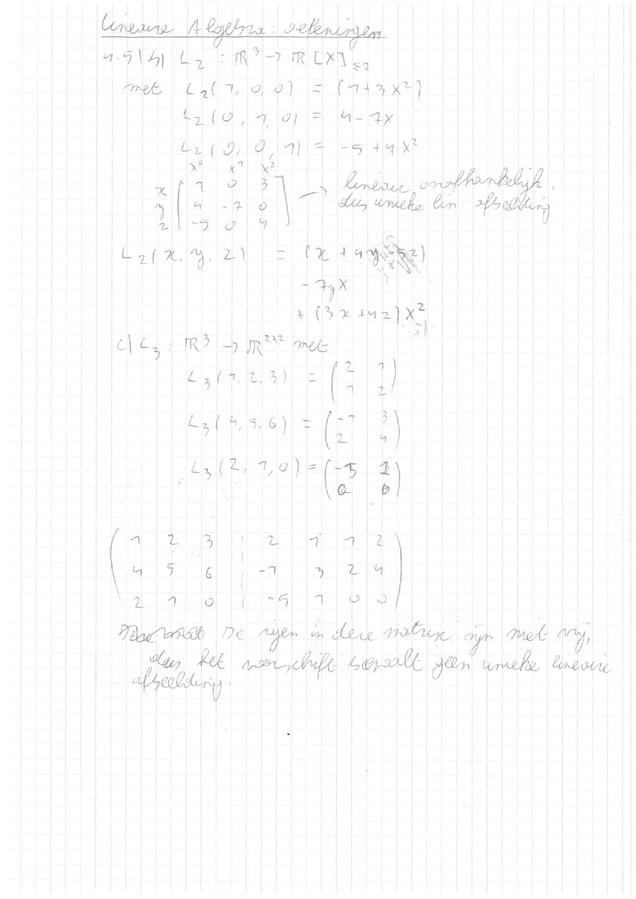 Lineaire Algebra: oefeningen
4.5|b| L₂ : ℝ³ → ℝ[X]≤2
met L₂(1, 0, 0) = (1+3X²)
L₂(0, 1, 0) = 4-7X
L₂(0, 0, 1) = -5+4X²
X⁰ X¹ X²
x 1 0 3
y 4 -7 0 → lineair onafhankelijk,
z -5 0 4 dus unieke lin. afbeelding
L₂(x, y, z) = (x + 4y -5z)
- 7yX
+ (3x + 4z)X²
c) L₃ : ℝ³ → ℝ²ˣ² met
L₃(1, 2, 3) = (2 1
1 2)
L₃(4, 5, 6) = (-1 3
2 4)
L₃(2, 1, 0) = (-5 1
0 0)
( 1 2 3 | 2 1 1 2
4 5 6 | -1 3 2 4
2 1 0 | -5 1 0 0 )
De rijen in deze matrix zijn niet vrij,
dus het voorschrift bepaalt geen unieke lineaire
afbeelding.